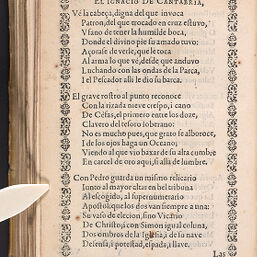 EL IGNACIO DE CANTABRIA,
Vè la cabeça, digna del que inuoca
Patron, del que trocado en cera estuuo,
Vfano de tener la humilde boca,
Donde el diuino pie su amado tuuo;
Açorase de verse, que le toca
Al arma lo que vè, desde que anduuo
Luchando con las ondas de la Parca,
I el Pescador alli le dio su barca.
El graue rostro al punto reconoce
Con la rizada nieue crespo, i cano
De Cèfas, el primero entre los doze,
Clauero del tesoro soberano:
No es mucho pues, que grato se alboroce,
I de los ojos haga vn Oceano;
Viendo al que vio baxar de su alta cumbre
En carcel de oro aqui, si allà de lumbre.
Con Pedro guarda vn mismo relicario
Iunto al mayor altar en bel tribuna
Al escogido, al supernumerario
Apostol, que los dos van siempre a vna:
Su vaso de eleccion, sino Vicario
De Christo, con Simon igual coluna,
Dos ombros de la Iglesia, i de su naue
Defensa, i potestad, espada, i llaue.
Las